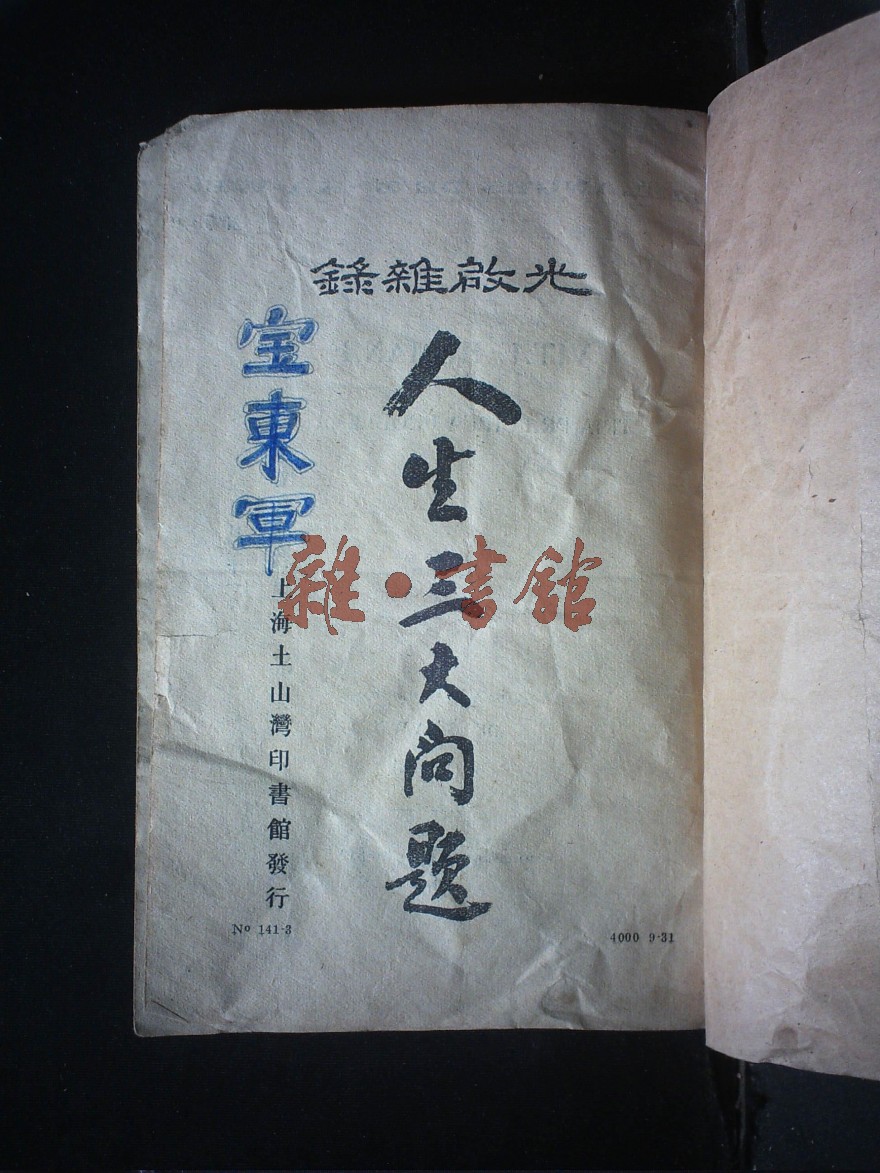 光啟雜錄
人生三大问题
宝東軍
上海土山灣印書館發行
Nº 141-3
4000 9-31
雜·書館